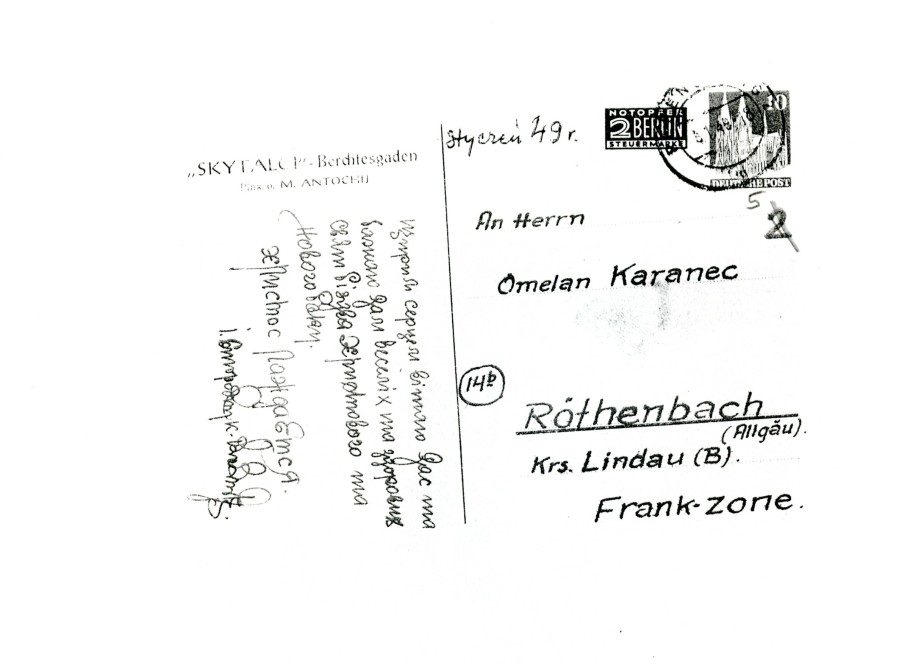 „SKYTALCI“ - Berchtesgaden
Pinx u. M. ANTOCHIJ
Щирим серцем вітаю Вас та
бажаю Вам веселих та здорових
свят Різдва Христового та
Нового Року.
Христос Раждається.
Styczeń 49 r.
NOTOPFER
2 BERLIN
STEUERMARKE
DEUTSCHE POST
5
2
An Herrn
Omelan Karanec
14b
Röthenbach
(Allgäu).
Krs. Lindau (B).
Frank-zone.